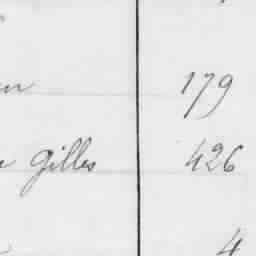 179
Gilles 426
4